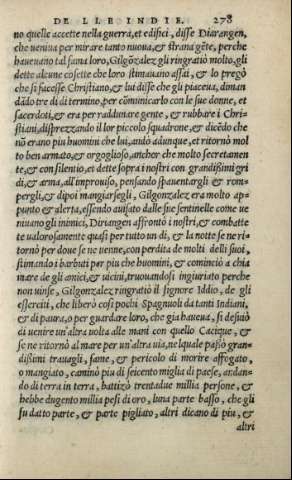 DE LLE INDIE. 278
no quelle accette nella guerra, et edifici, disse Diarangen,
che ueniua per mirare tanto nuoua, & strana gẽte, perche
haueuano tal fama loro, Gilgõzalez gli ringratiò molto, gli
dette alcune cosette che loro stimauano assai, & lo pregò
che si facesse Christiano, & lui disse che gli piaceua, diman
dãdo tre di di termino, per cõmunicarlo con le sue donne, et
sacerdoti, & era per raddunare gente, & rubbare i Chri-
stiani, disprezzando il lor piccolo squadrone, & dicẽdo che
nõ erano piu huomini che lui, andò adunque, et ritornò mol
to ben armato, & orgoglioso, anchor che molto secretanen
te, & con silentio, et dette sopra i nostri con grandissimi gri
di, & arma, all'improuiso, pensando spauentargli & rom-
pergli, & dipoi mangiarsegli, Gilgonzalez era molto ap-
punto & alerta, essendo auisato dalle sue sentinelle come ue
niuano gli inimici, Diriangen affrontò i nostri, & combatte
te ualorosamente quasi per tutto un dì, & la notte se ne ri-
tornò per doue se ne uenne, con perdita de molti delli suoi,
stimando i barbari per piu che huomini, & cominciò a chia
mare de gli amici, & uicini, truouandosi ingiuriato perche
non uinse, Gilgonzalez ringratiò il Signore Iddio, de gli
esserciti, che liberò così pochi Spagnuoli da tanti Indiani,
& di paura, o per guardare loro, che gia haueua, si desuiò
di uenire un'altra uolta alle mani con quello Cacique, &
se ne ritornò al mare per un'altra uia, ne lquale passò gran-
dissimi trauagli, fame, & pericolo di morire affogato,
o mangiato, caminò piu di seicento miglia di paese, andan-
do di terra in terra, battizò trentadue millia persone, &
hebbe dugento millia pesi di oro, luna parte basso, che gli
fu datto parte, & parte pigliato, altri dicano di piu, &
altri